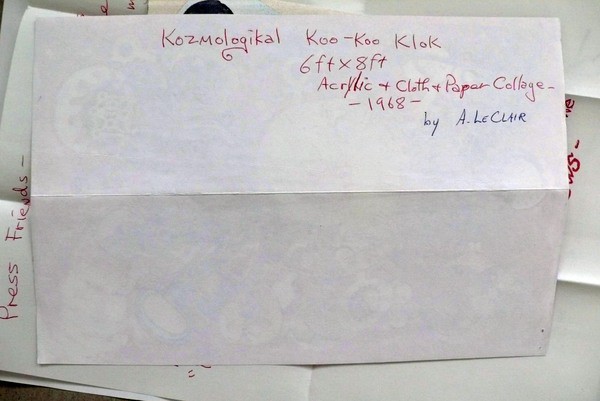 Kozmologikal Koo-Koo Klok
6ft x 8ft
Acrylic + Cloth + Paper Collage -
- 1968 -
by A. LeClair
Press Friends -